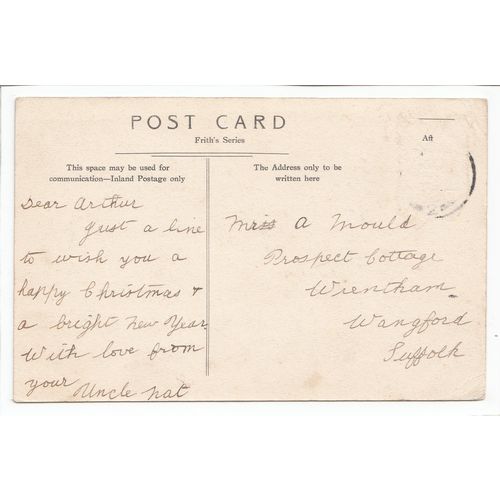 POST CARD
Frith's Series
Aft
This space may be used for
communication—Inland Postage only
The Address only to be
written here
Dear Arthur
Just a line
to wish you a
happy Christmas +
a bright New Year
With love from
your
Uncle Nat
A Mould
Prospect Cottage
Wrentham
Wangford
Suffolk